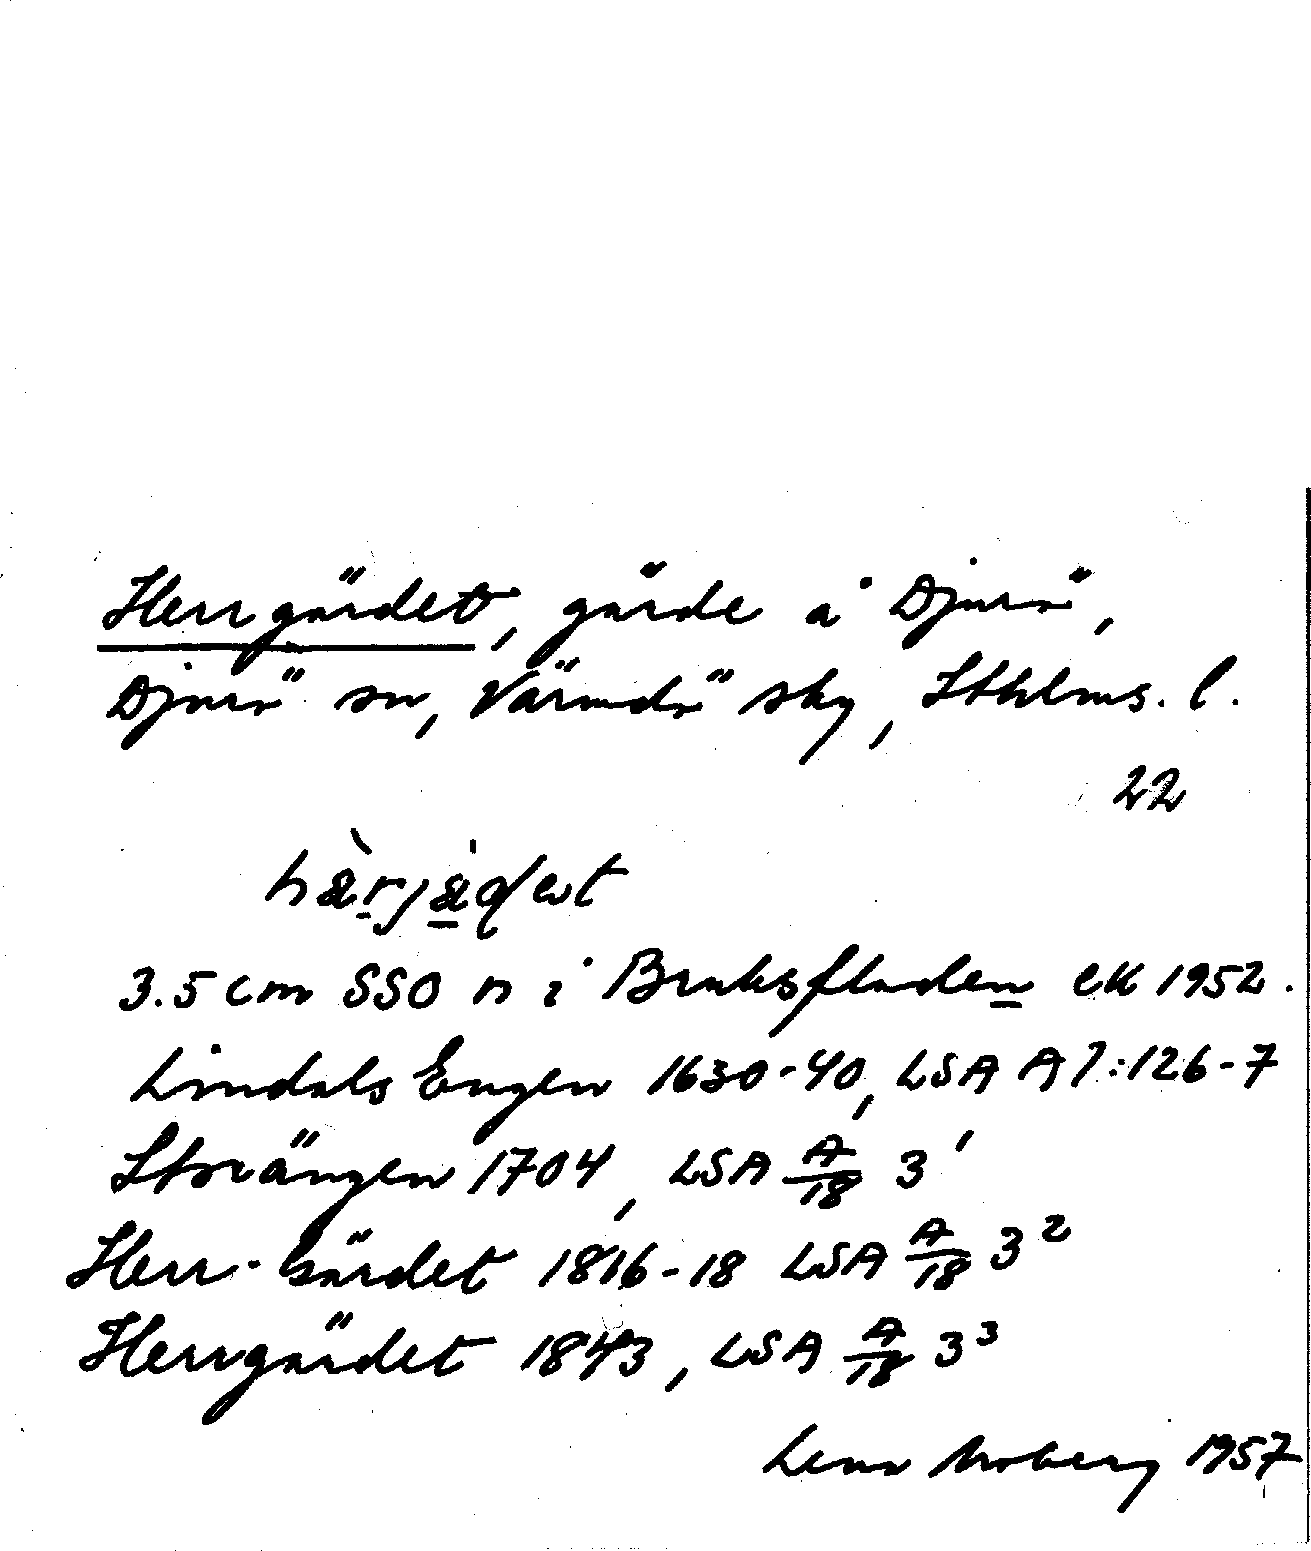 Herrgärdet, gärde å Djurö,
Djurö sn, Värmdö skg, Sthlms. l.
22
3.5 cm SSO n i Bruksfladen EK 1952.
Lindals Engen 1630-40, LSA A7:126-7
Storängen 1704, LSA A/18 3¹
Herr-Gärdet 1816-18 LSA A/18 3²
Herrgärdet 1843, LSA A/18 3³
Lena Moberg 1957